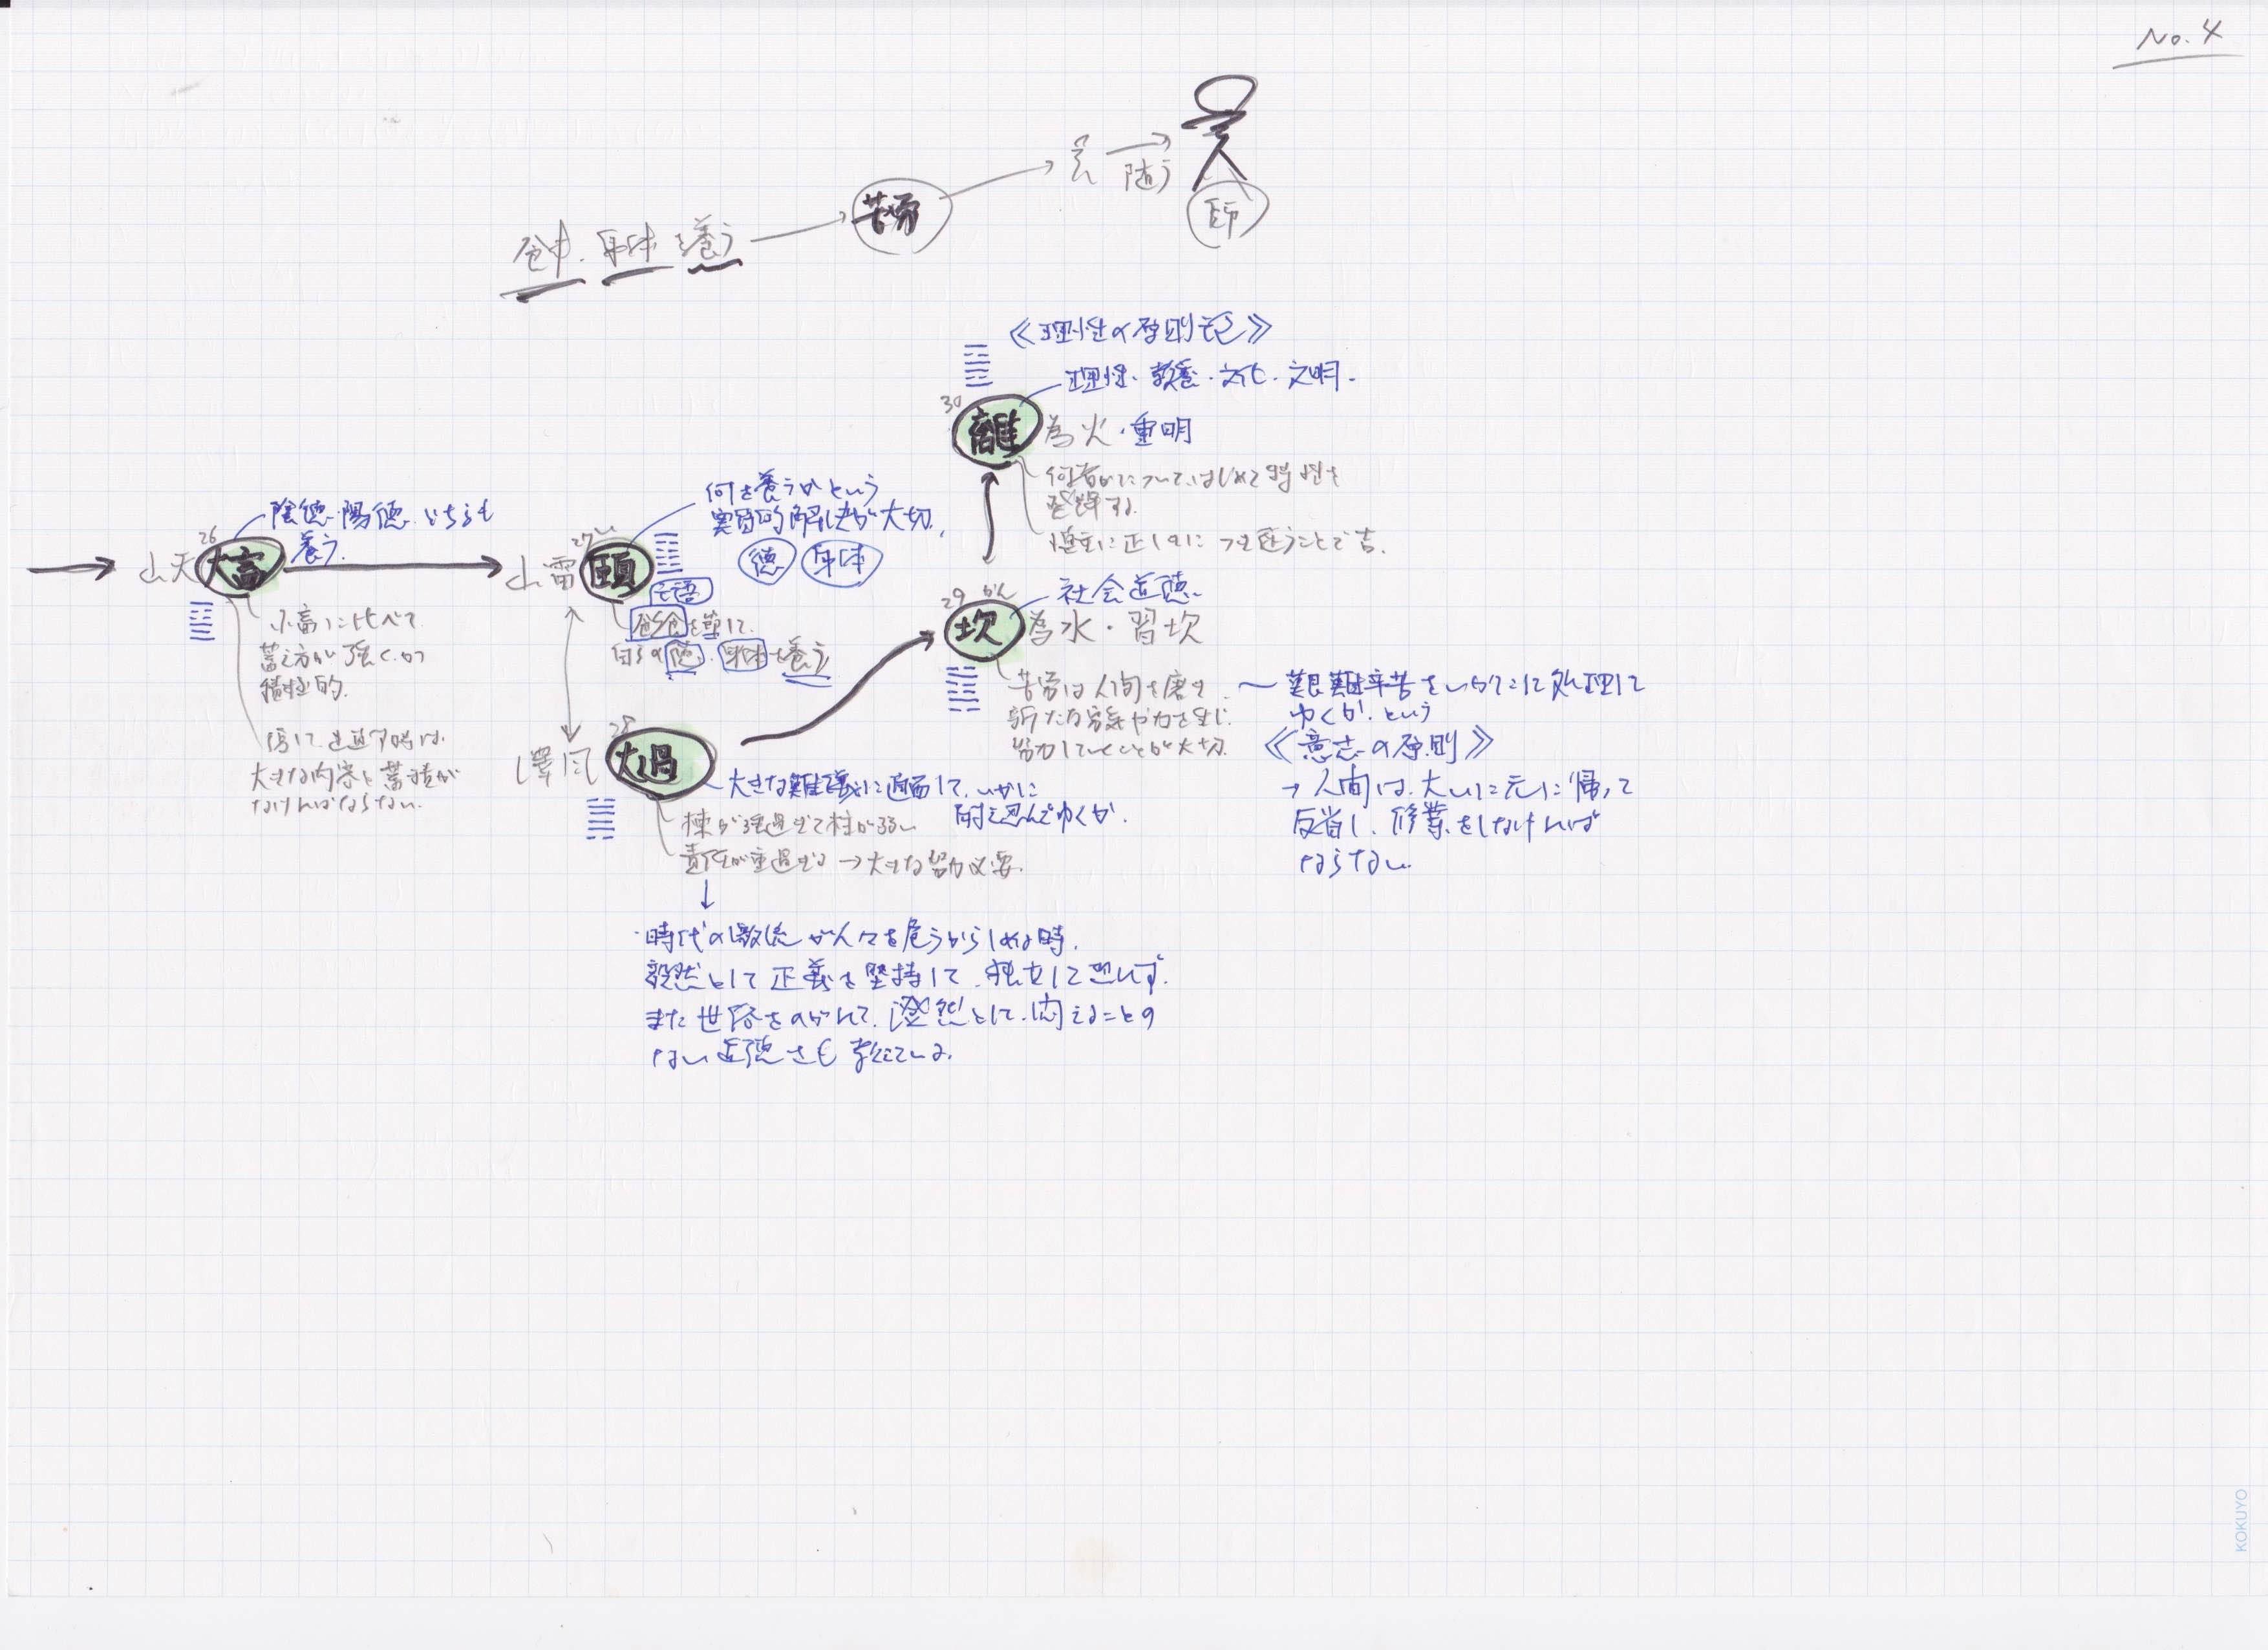 No.4
師
随う
苦労
身体 を養う
《理性の原則》
理性・教養・文化・文明.
30
離 為火・重明
発揮する.
に正しいものに つき従うことで吉.
陰徳・陽徳 どちらも
養う.
26
山天 大畜
小畜に比べて
蓄え方が強く、かつ
積極的.
大きな内容と蓄積が
なければならない.
何を養うかという
実質的解決が大切.
徳 身体
27 い
山雷 頤
言語
飲食 を節して.
自らの 徳・身体 を養う
29 かん
社会道徳.
坎 為水・習坎
苦労は人間を磨き.
新たな勇気や力を生じ.
努力していくことが大切.
艱難辛苦をいかにして処理して
ゆくか. という
《意志の原則》
→ 人間は. 大いに元に帰って
反省し、修業をしなければ
ならない.
28
沢風 大過
大きな難儀に直面して. いかに
耐え忍んでゆくか.
棟が強過ぎて柱が弱い
責任が重過ぎる → 大きな努力必要.
↓
・時代の激流が人々を危うからしめる時.
毅然として 正義を堅持して. 独立して恐れず.
また世俗をのがれて. 澄然として. 悶えることの
ない道徳さも教えている.
KOKUYO